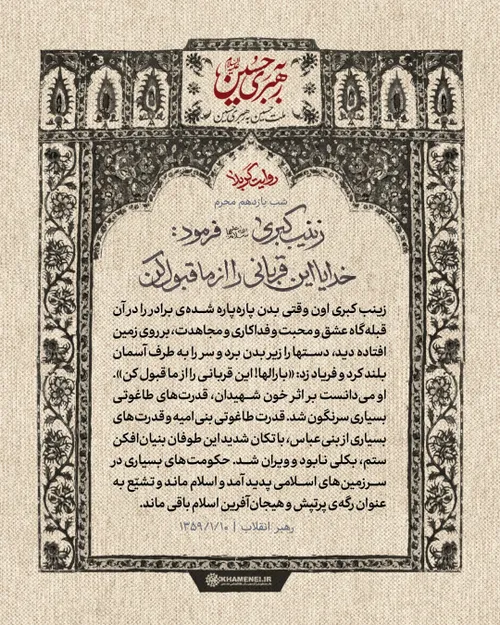 به رهبری حسین علیه‌السلام
ملت حسین به رهبری حسین
روایت کربلا
شب یازدهم محرم
زینب کبری سلام‌الله‌علیها فرمود:
خدایا این قربانی را از ما قبول کن
زینب کبری اون وقتی بدن پاره‌پاره شده‌ی برادر را در آن
قبله‌گاه عشق و محبت و فداکاری و مجاهدت، بر روی زمین
افتاده دید، دستها را زیر بدن برد و سر را به طرف آسمان
بلند کرد و فریاد زد: «بارالها! این قربانی را از ما قبول کن».
او می‌دانست بر اثر خون شهیدان، قدرت‌های طاغوتی
بسیاری سرنگون شد. قدرت طاغوتی بنی‌امیه و قدرت‌های
بسیاری از بنی‌عباس، با تکان شدید این طوفان بنیان‌افکن
ستم، بکلی نابود و ویران شد. حکومت‌های بسیاری در
سرزمین‌های اسلامی پدید آمد و اسلام ماند و تشیّع به
عنوان رگه‌ی پرتپش و هیجان‌آفرین اسلام باقی ماند.
رهبر انقلاب | ۱۳۵۹/۱/۱۰
KHAMENEI.IR